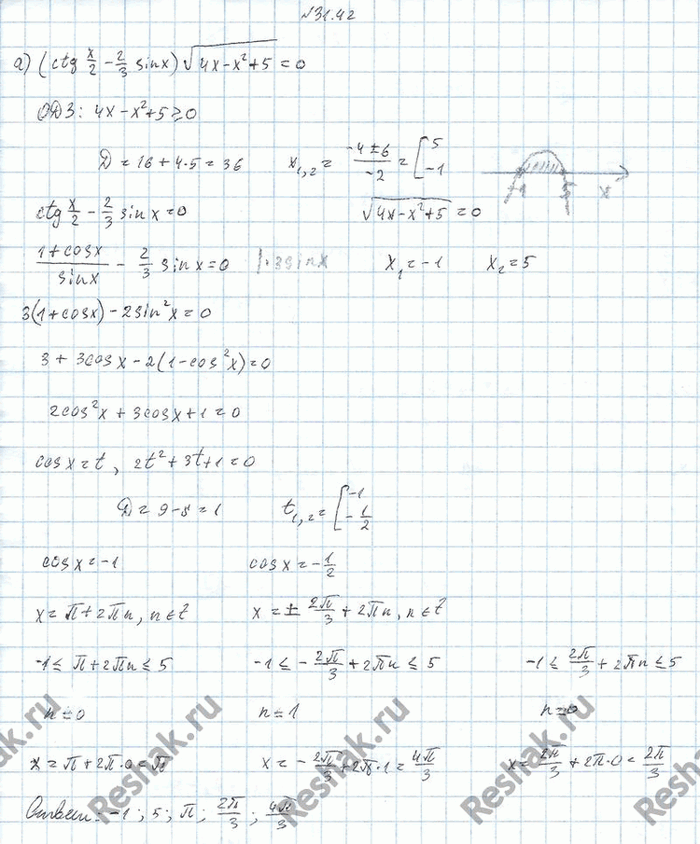 №31.42
а) (ctg x/2 - 2/3 sinx) √(4x-x²+5) = 0
ОДЗ: 4x-x²+5≥0
D = 16+4·5=36   x₁,₂ = (-4±6)/(-2) = [5; -1
ctg x/2 - 2/3 sinx=0   √(4x-x²+5) = 0
(1+cosx)/sinx - 2/3 sinx=0 |·3sinx   x₁=-1   x₂=5
3(1+cosx)-2sin²x=0
3+3cosx-2(1-cos²x)=0
2cos²x+3cosx+1=0
cosx=t, 2t²+3t+1=0
D=9-8=1   t₁,₂=[-1; -1/2
cosx=-1   cosx=-1/2
x=π+2πn, n∈Z   x=±2π/3+2πn, n∈Z
-1≤π+2πn≤5   -1≤-2π/3+2πn≤5   -1≤2π/3+2πn≤5
n=0   n=1   n=0
x=π+2π·0=π   x=-2π/3+2π·1=4π/3   x=2π/3+2π·0=2π/3
Ответ: -1; 5; π; 2π/3; 4π/3
Reshak.ru
Reshak.ru
Reshak.ru